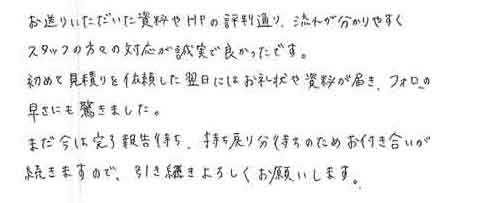 お送りいただいた資料やHPの評判通り、流れが分かりやすく
スタッフの方々の対応が誠実で良かったです。
初めて見積りを依頼した翌日にはお礼状や資料が届き、フォローの
早さにも驚きました。
まだ今は完了報告待ち、持ち戻り分待ちのためお付き合いが
続きますので、引き継きよろしくお願いします。